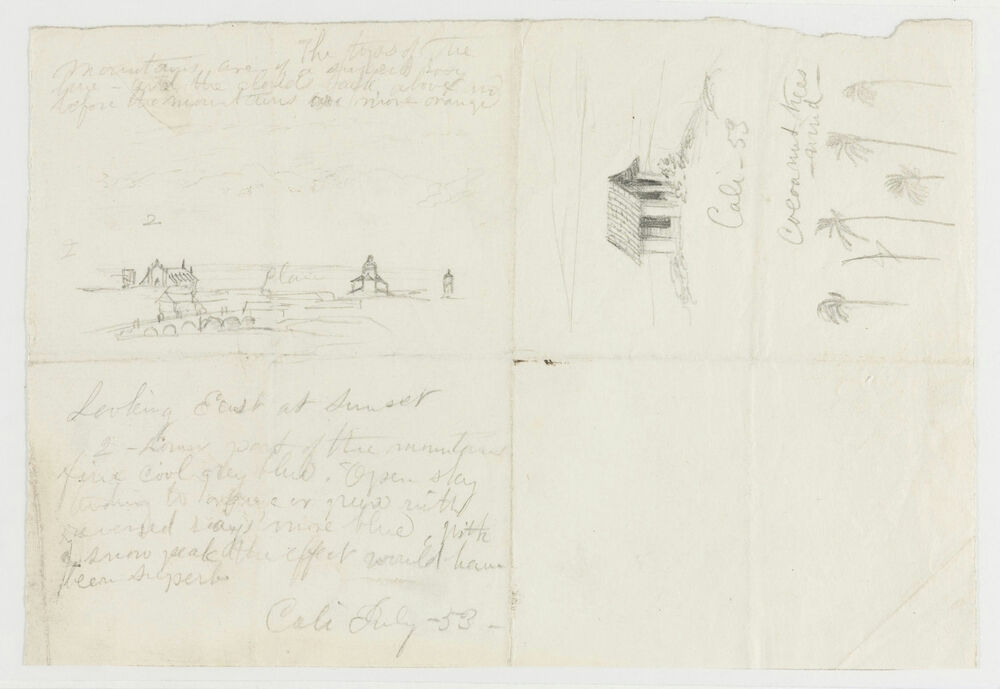 The tops of the
mountains are of a superb rosy
hue - and the cloud bank above
before the mountains are more orange
2
1
plain
Looking East at sunset
2 - Lower part of the mountains
fine cool grey blue. Open sky
to orange or green with
reversed rays more blue, with
a snow peak the effect would have
been superb
Cali July - 53 -
Cali - 53
Cocoanut trees
- wind